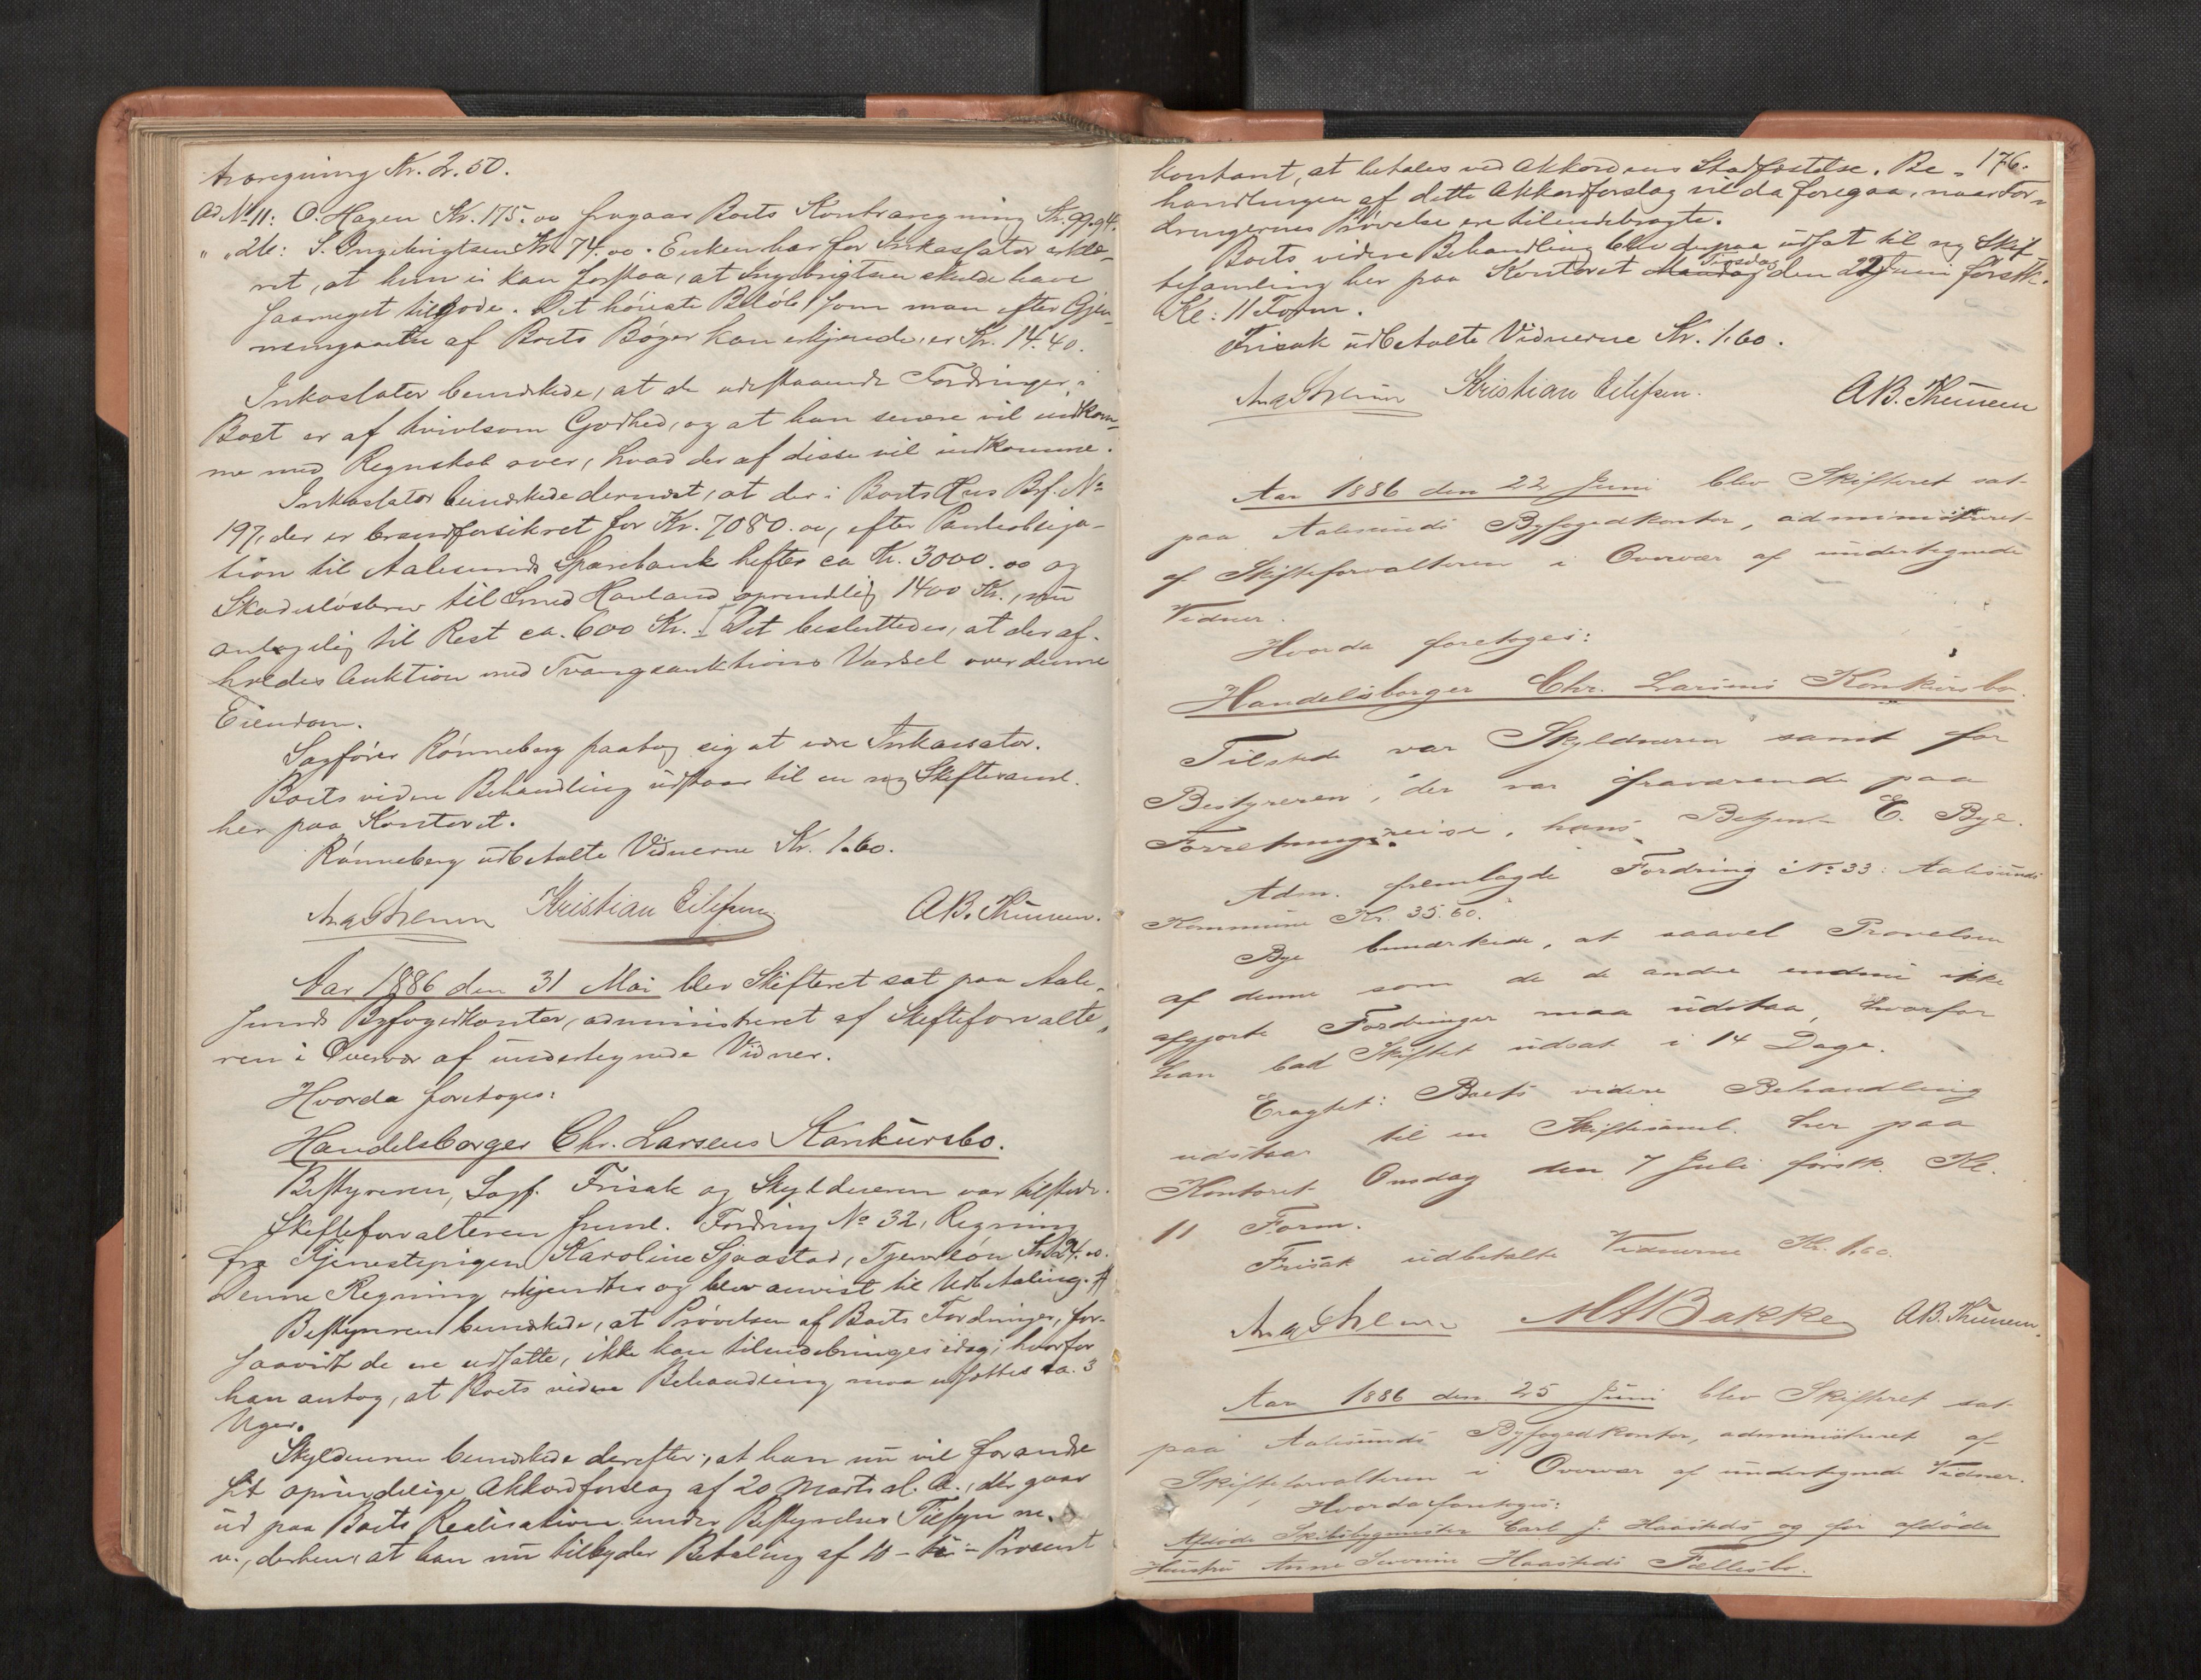 traregning Kr. 2.50.
Ad No 11: O. Hagen Kr. 175.00 fragaar Boets Kontraregning Kr. 99.94.
" " 26: S. Ingebrigtsen Kr. 74.00. Enken har for Inkassator erklæ-
ret, at hun ei kan forstaa, at Ingebrigtsen skulde have
saameget tilgode. Det høieste Beløb som man efter Gjen-
nemgaaelse af Boets Bøger kan erkjende, er Kr. 14.40.
Inkassator bemærkede, at de udestaaende Fordringer i
Boet er af tvivlsom Godhed, og at han senere vil indkom-
me med Regnskab over, hvad der af disse vil indkomme.
Inkassator bemærkede dernæst, at der i Boets Hus Brf. No
197, der er brandforsikret for Kr. 7080.00, efter Panteobliga-
tion til Aalesunds Sparebank hefter ca Kr. 3000.00 og
Skadesløsbrev til Smed Havland oprindlig 1400 Kr., nu
antagelig til Rest ca. 600 Kr. Det besluttedes, at der af-
holdes Auktion med Tvangsauktions Varsel over denne
Eiendom.
Sagfører Rønneberg paatog sig at være Inkassator.
Boets videre Behandling udstaar til en ny Skiftesaml.
her paa Kontoret.
Rønneberg udbetalte Vidnerne Kr. 1.60.
Kristian Eilifsen A.B. Thunem.
Aar 1886 den 31 Mai blev Skifteret sat paa Aale-
sunds Byfogedkontor, administreret af Skifteforvalte-
ren i Overvær af undertegnede Vidner.
Hvorda foretoges:
Handelsborger Chr. Larsens Konkursbo.
Bestyreren, Sagf. Frisak og Skyldneren var tilstede.
Skifteforvalteren freml. Fordring No 32, Regning
fra Tjenestepigen Karoline Sjaastad, Tjenerløn Kr. 24.00.
Denne Regning erkjendtes og blev anvist til Udbetaling.
Bestyreren bemærkede, at Prøvelsen af Boets Fordringer, for-
saavidt de ere udsatte, ikke kan tilendebringes idag, hvorfor
han antog, at Boets videre Behandling maa udsættes ca. 3
Uger.
Skyldneren bemærkede derefter, at han nu vil forandre
sit oprindelige Akkordforslag af 20 Marts d. A., der gaar
ud paa Boets Realisation under Bestyrelsens Tilsyn m.
v., derhen, at han nu tilbyder Betaling af 10 - ti - Procent
176.
kontant, at betales ved Akkordens Stadfæstelse. Be-
handlingen af dette Akkordforslag vil da foregaa, naar For-
dringernes Prøvelse ere tilendebragte.
Boets videre Behandling blev derpaa udsat til ny Skif-
Tirsdag
tesamling her paa Kontoret Mandag den 22 Juni førstk.
Kl: 11 Form.
Frisak udbetalte Vidnerne Kr. 1.60.
Kristian Eilifsen. A.B. Thunem
Aar 1886 den 22 Juni blev Skifteret sat
paa Aalesunds Byfogedkontor, administreret
af Skifteforvalteren i Overvær af undertegnede
Vidner.
Hvorda foretoges:
Handelsborger Chr. Larsens Konkursbo.
Tilstede var Skyldneren samt for
Bestyreren, der var fraværende paa
Forretningsreise, hans Betjent E. Bye.
Adm. fremlagde Fordring No 33: Aalesunds
Kommune Kr. 35.60.
Bye bemærkede, at saavel Prøvelsen
af denne som de de andre endnu ikke
afgjorte Fordringer maa udstaa, hvorfor
han bad Skiftet udsat i 14 Dage.
Eragtet: Boets videre Behandling
udstaar til en Skiftesaml. her paa
Kontoret Onsdag den 7 Juli førstk. Kl.
11 Form.
Frisak udbetalte Vidnerne Kr. 1.60.
Bakke A.B. Thunem.
Aar 1886 den 25 Juni blev Skifteret sat
paa Aalesunds Byfogedkontor, administreret af
Skifteforvalteren i Overvær af undertegnede Vidner.
Hvorda foretoges:
Afdøde Skibsbygmester Carl J. Haasteds og før afdøde
Hustru Anne Severine Haasteds Fællesbo.